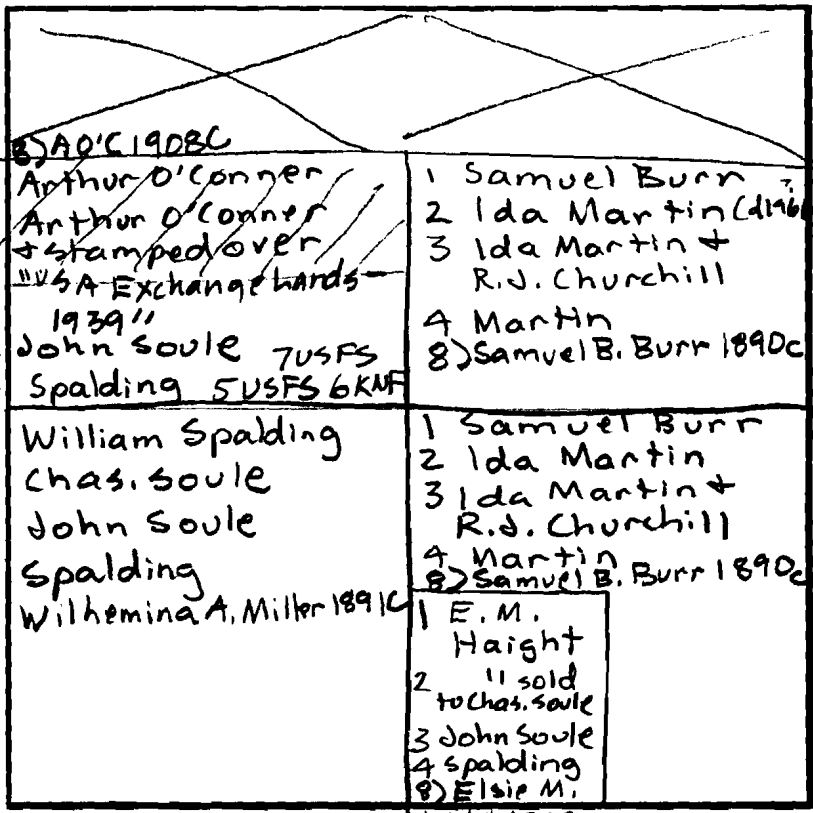 8) A O'C 1908C
Arthur O'Conner
Arthur O'Conner
+ stamped over
"USA Exchange Lands
1939"
John Soule 7USFS
Spalding 5USFS 6KNF
1 Samuel Burr
2 Ida Martin (d196
3 Ida Martin +
R.J. Churchill
4 Martin
8) Samuel B. Burr 1890c
William Spalding
Chas. Soule
John Soule
Spalding
Wilhemina A. Miller 1891C
1 Samuel Burr
2 Ida Martin
3 Ida Martin +
R.J. Churchill
4 Martin
8) Samuel B. Burr 1890c
1 E. M.
Haight
2 " sold
to Chas. Soule
3 John Soule
4 Spalding
8) Elsie M.